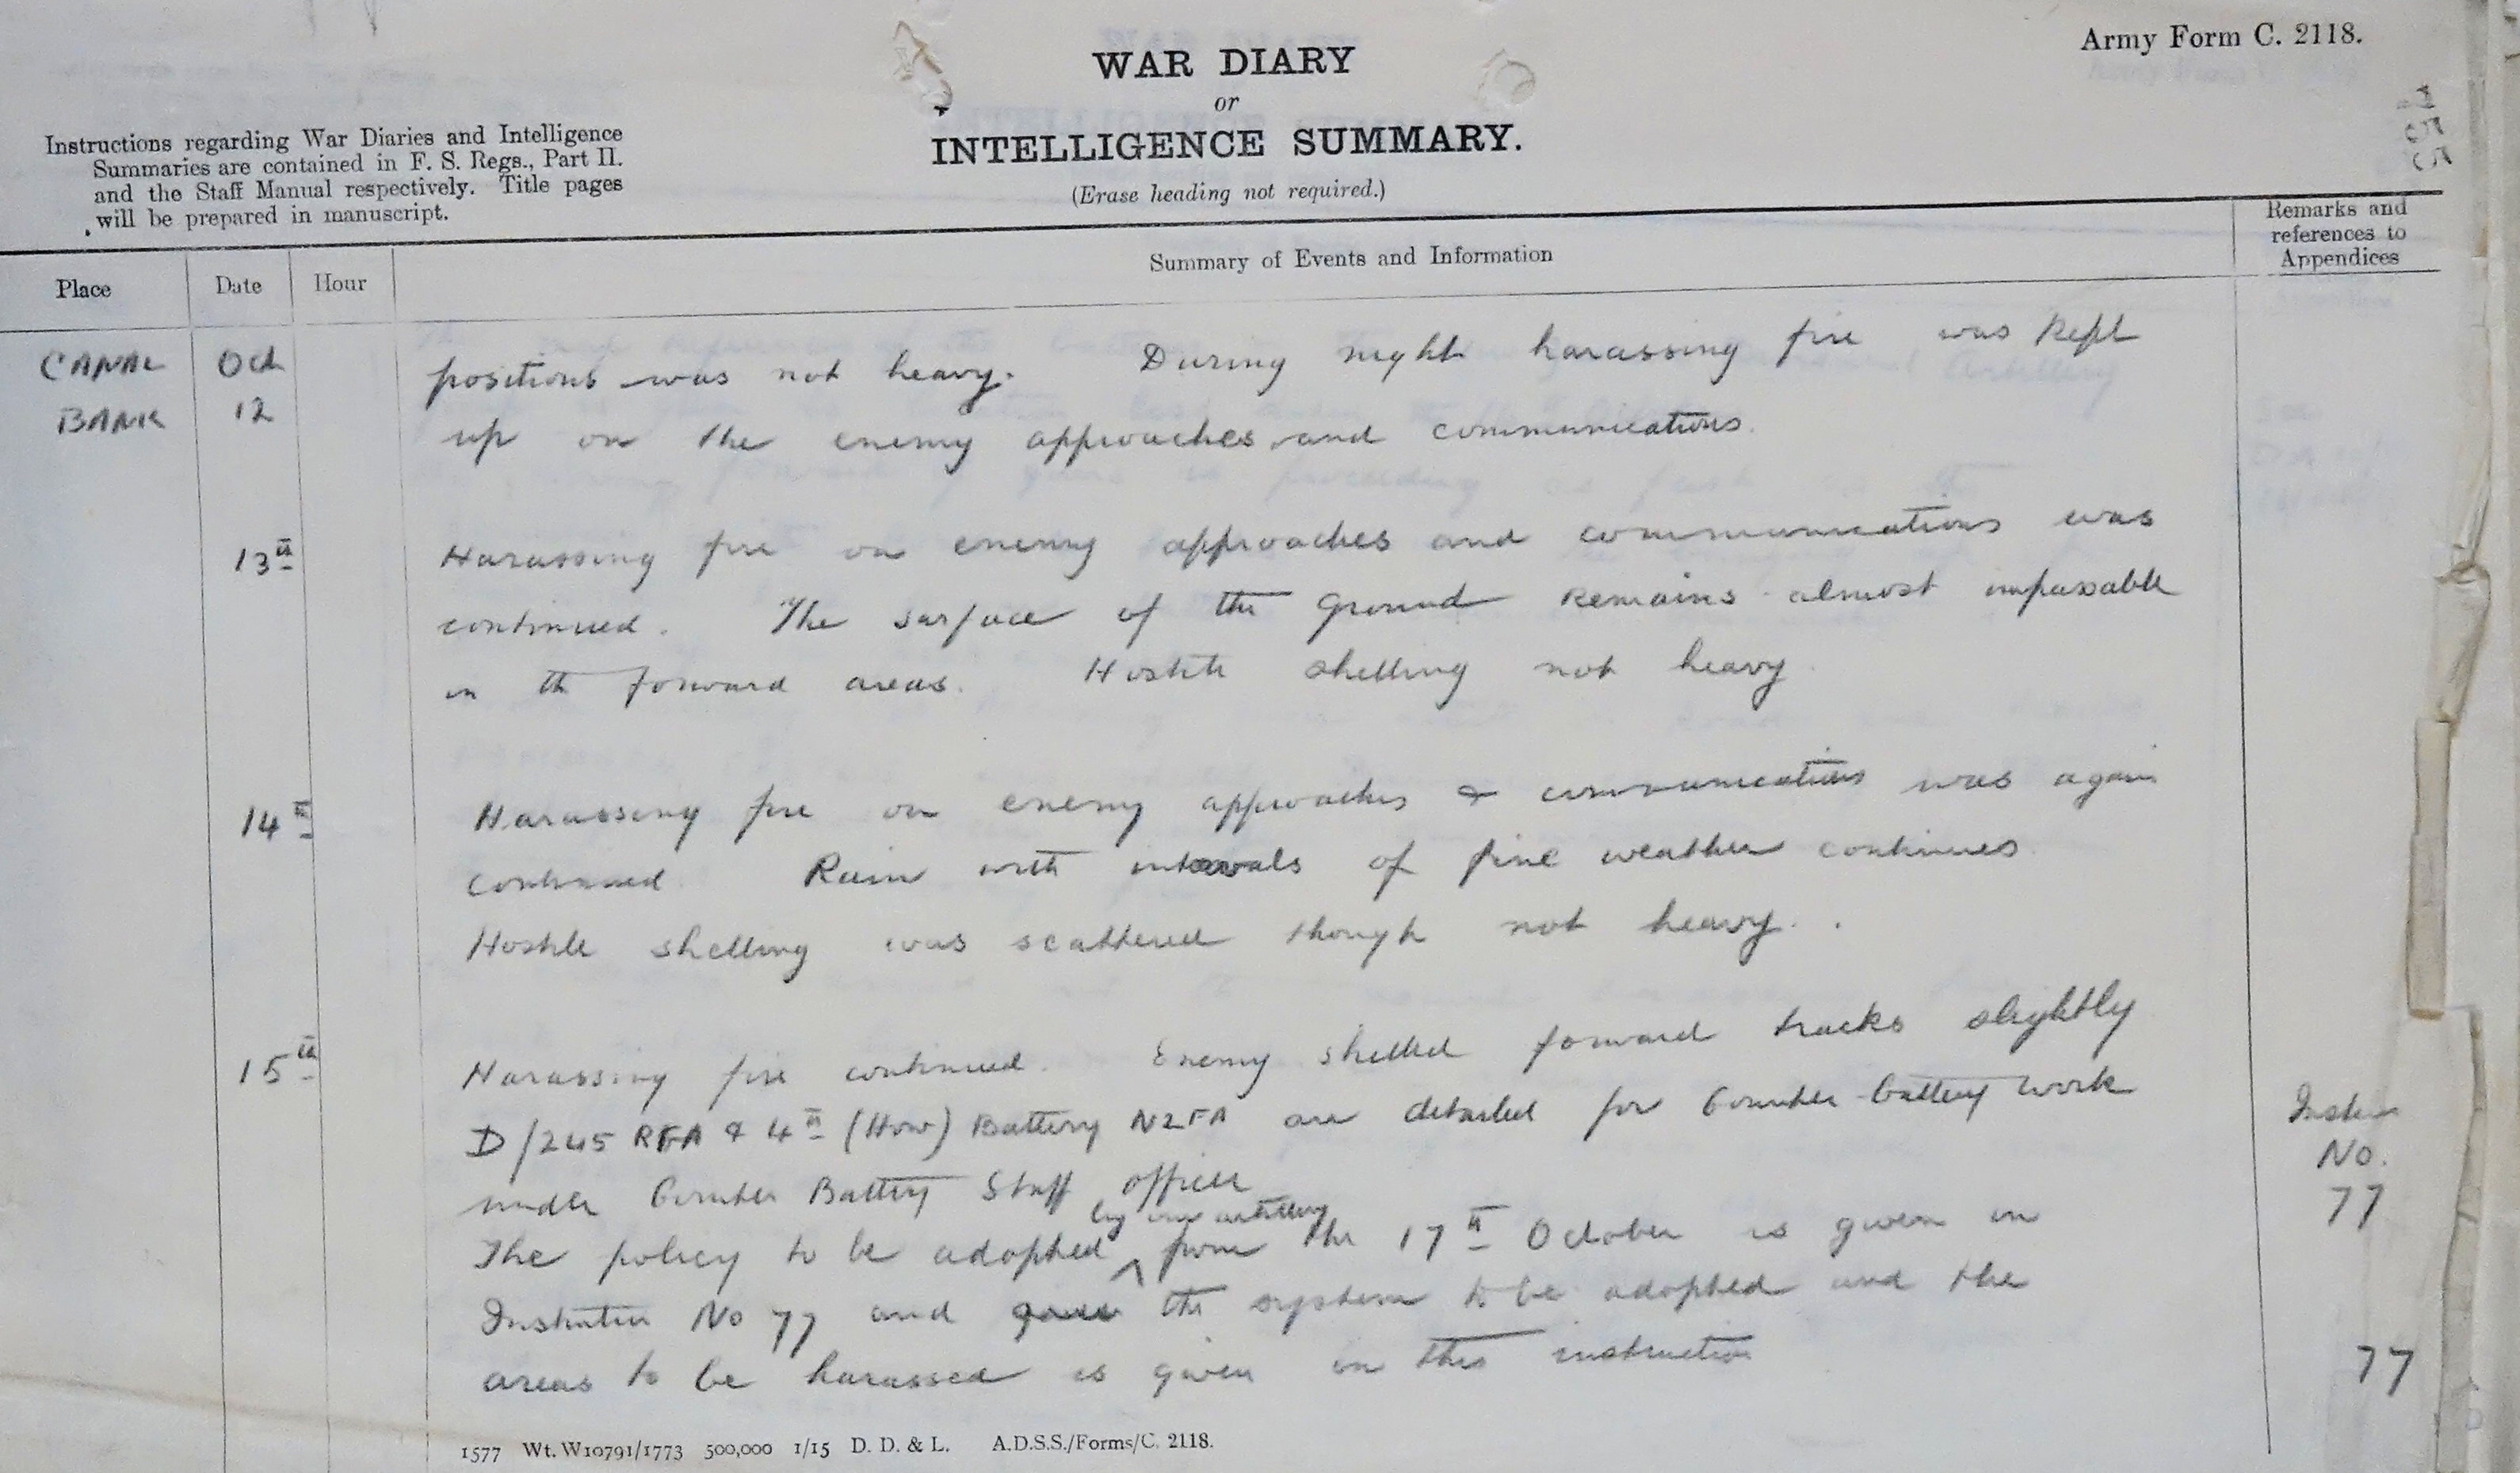 Army Form C. 2118.
WAR DIARY
or
INTELLIGENCE SUMMARY.
(Erase heading not required.)
Instructions regarding War Diaries and Intelligence
Summaries are contained in F. S. Regs., Part II.
and the Staff Manual respectively. Title pages
will be prepared in manuscript.
Place
Date
Hour
Summary of Events and Information
Remarks and
references to
Appendices
CANAL
BANK
Oct
12
positions was not heavy. During night harassing fire was kept
up on the enemy approaches and communications.
13th
Harassing fire on enemy approaches and communications was
continued. The surface of the ground remains almost impassable
in the forward areas. Hostile shelling not heavy.
14th
Harassing fire on enemy approaches & communications was again
continued. Rain with intervals of fine weather continues
Hostile shelling was scattered though not heavy.
15th
Harassing fire continued. Enemy shelled forward tracks slightly
D/245 RFA & 4th (How) Battery NZFA are detailed for Counter-battery work
under Counter Battery Staff officer
The policy to be adopted by our artillery from the 17th October is given in
Instruction No 77 and the system to be adopted and the
areas to be harassed is given in this instruction
Instrn
No.
77
77
1577 Wt. W10791/1773 500,000 1/15 D. D. & L. A.D.S.S./Forms/C. 2118.